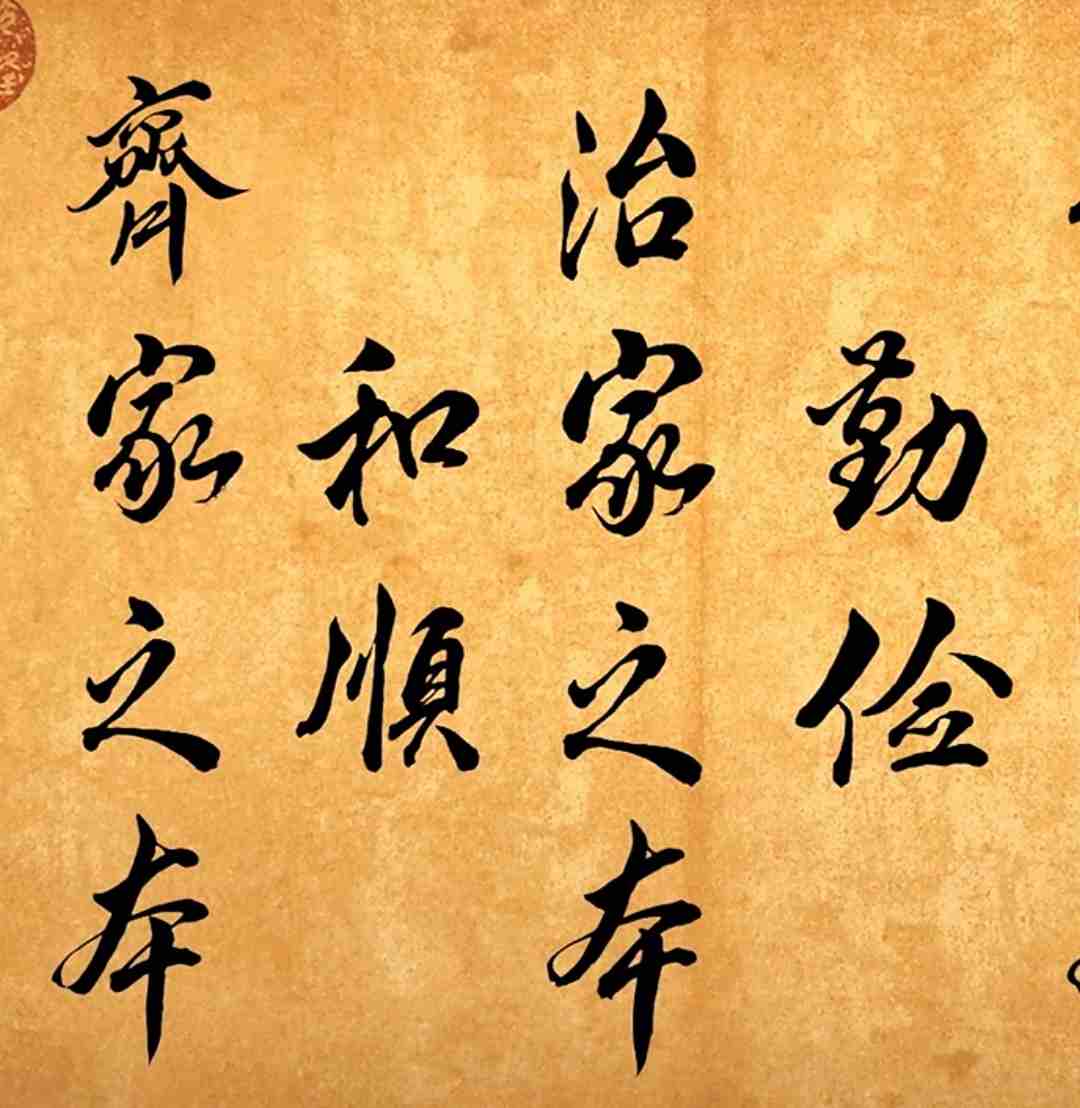 勤俭
治家之本
和順
齊家之本